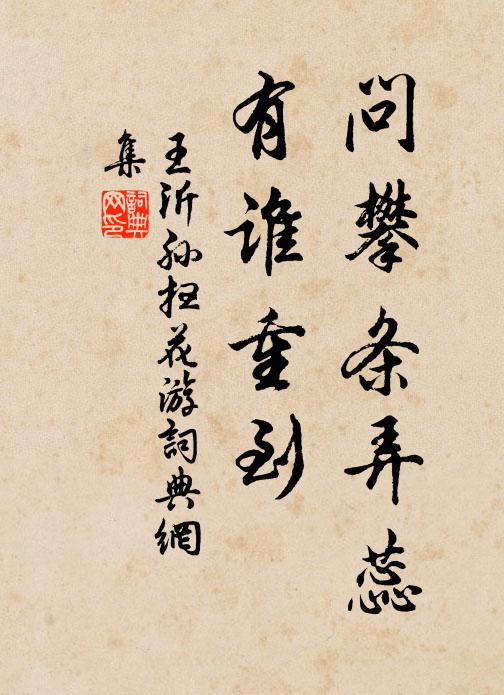 问攀条弄蕊
有谁重到
王沂孙扫花游词典網
集
詞典
网印